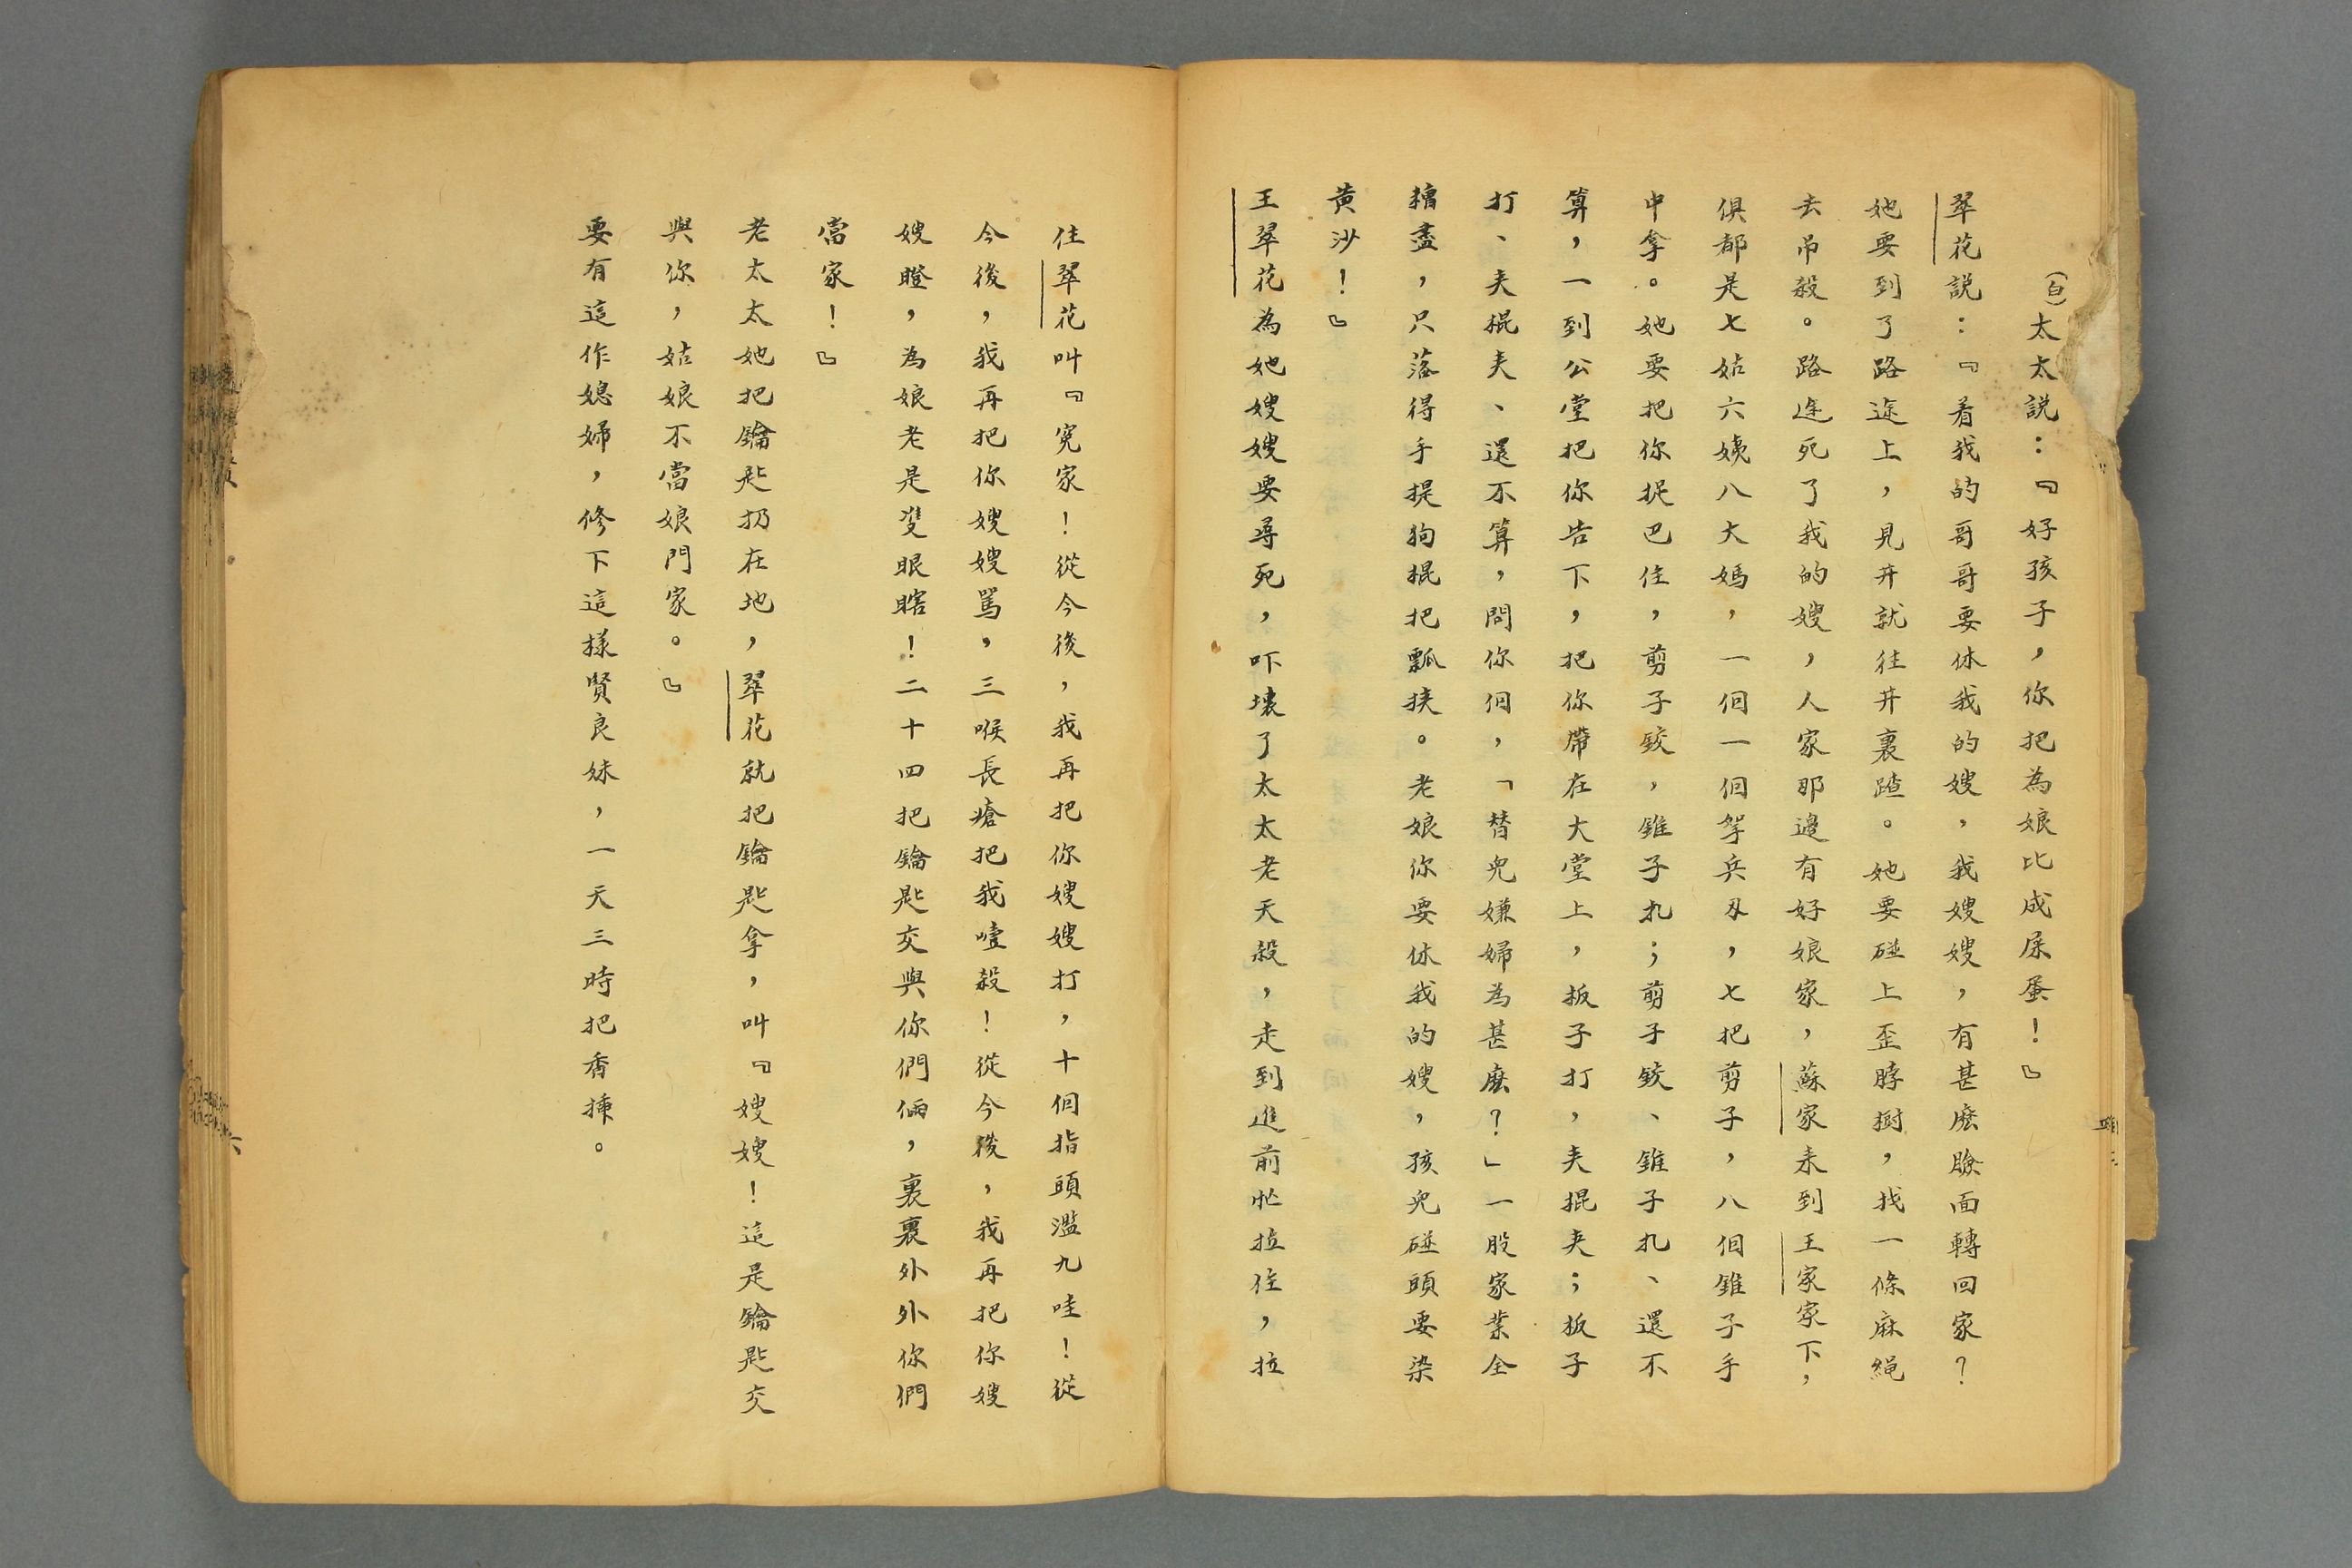 (白)太太説：『好孩子，你把為娘比成屎蛋！』
翠花説：『看我的哥哥要休我的嫂，我嫂嫂，有甚麽臉面轉回家？
她要到了路途上，見井就往井裏蹅。她要碰上歪脖樹，找一條麻繩
去吊殺。路途死了我的嫂，人家那邊有好娘家，蘇家来到王家家下，
俱都是七姑六姨八大媽，一個一個挐兵刄，七把剪子，八個錐子手
中拿。她要把你捉巴住，剪子鉸，錐子扎；剪子鉸、錐子扎、還不
算，一到公堂把你告下，把你帶在大堂上，扳子打，夹掍夹；板子
打、夹掍夹、還不算，問你個，「替兒嫌婦為甚麽？」一股家業全
糟盡，只落得手提狗掍把瓢挟。老娘你要休我的嫂，孩兒碰頭要染
黄沙！』
王翠花為她嫂嫂要尋死，吓壞了太太老天殺，走到進前忙拉住，拉
住翠花叫『寃家！從今後，我再把你嫂嫂打，十個指頭濫九哇！從
今後，我再把你嫂嫂罵，三喉長瘡把我噎殺！從今後，我再把你嫂
嫂瞪，為娘老是雙眼瞎！二十四把鑰匙交與你們倆，裏裏外外你們
當家！』
老太太她把鑰匙扔在地，翠花就把鑰匙拿，叫『嫂嫂！這是鑰匙交
與你，姑娘不當娘門家。』
要有這作媳婦，修下這樣賢良妹，一天三時把香揷。